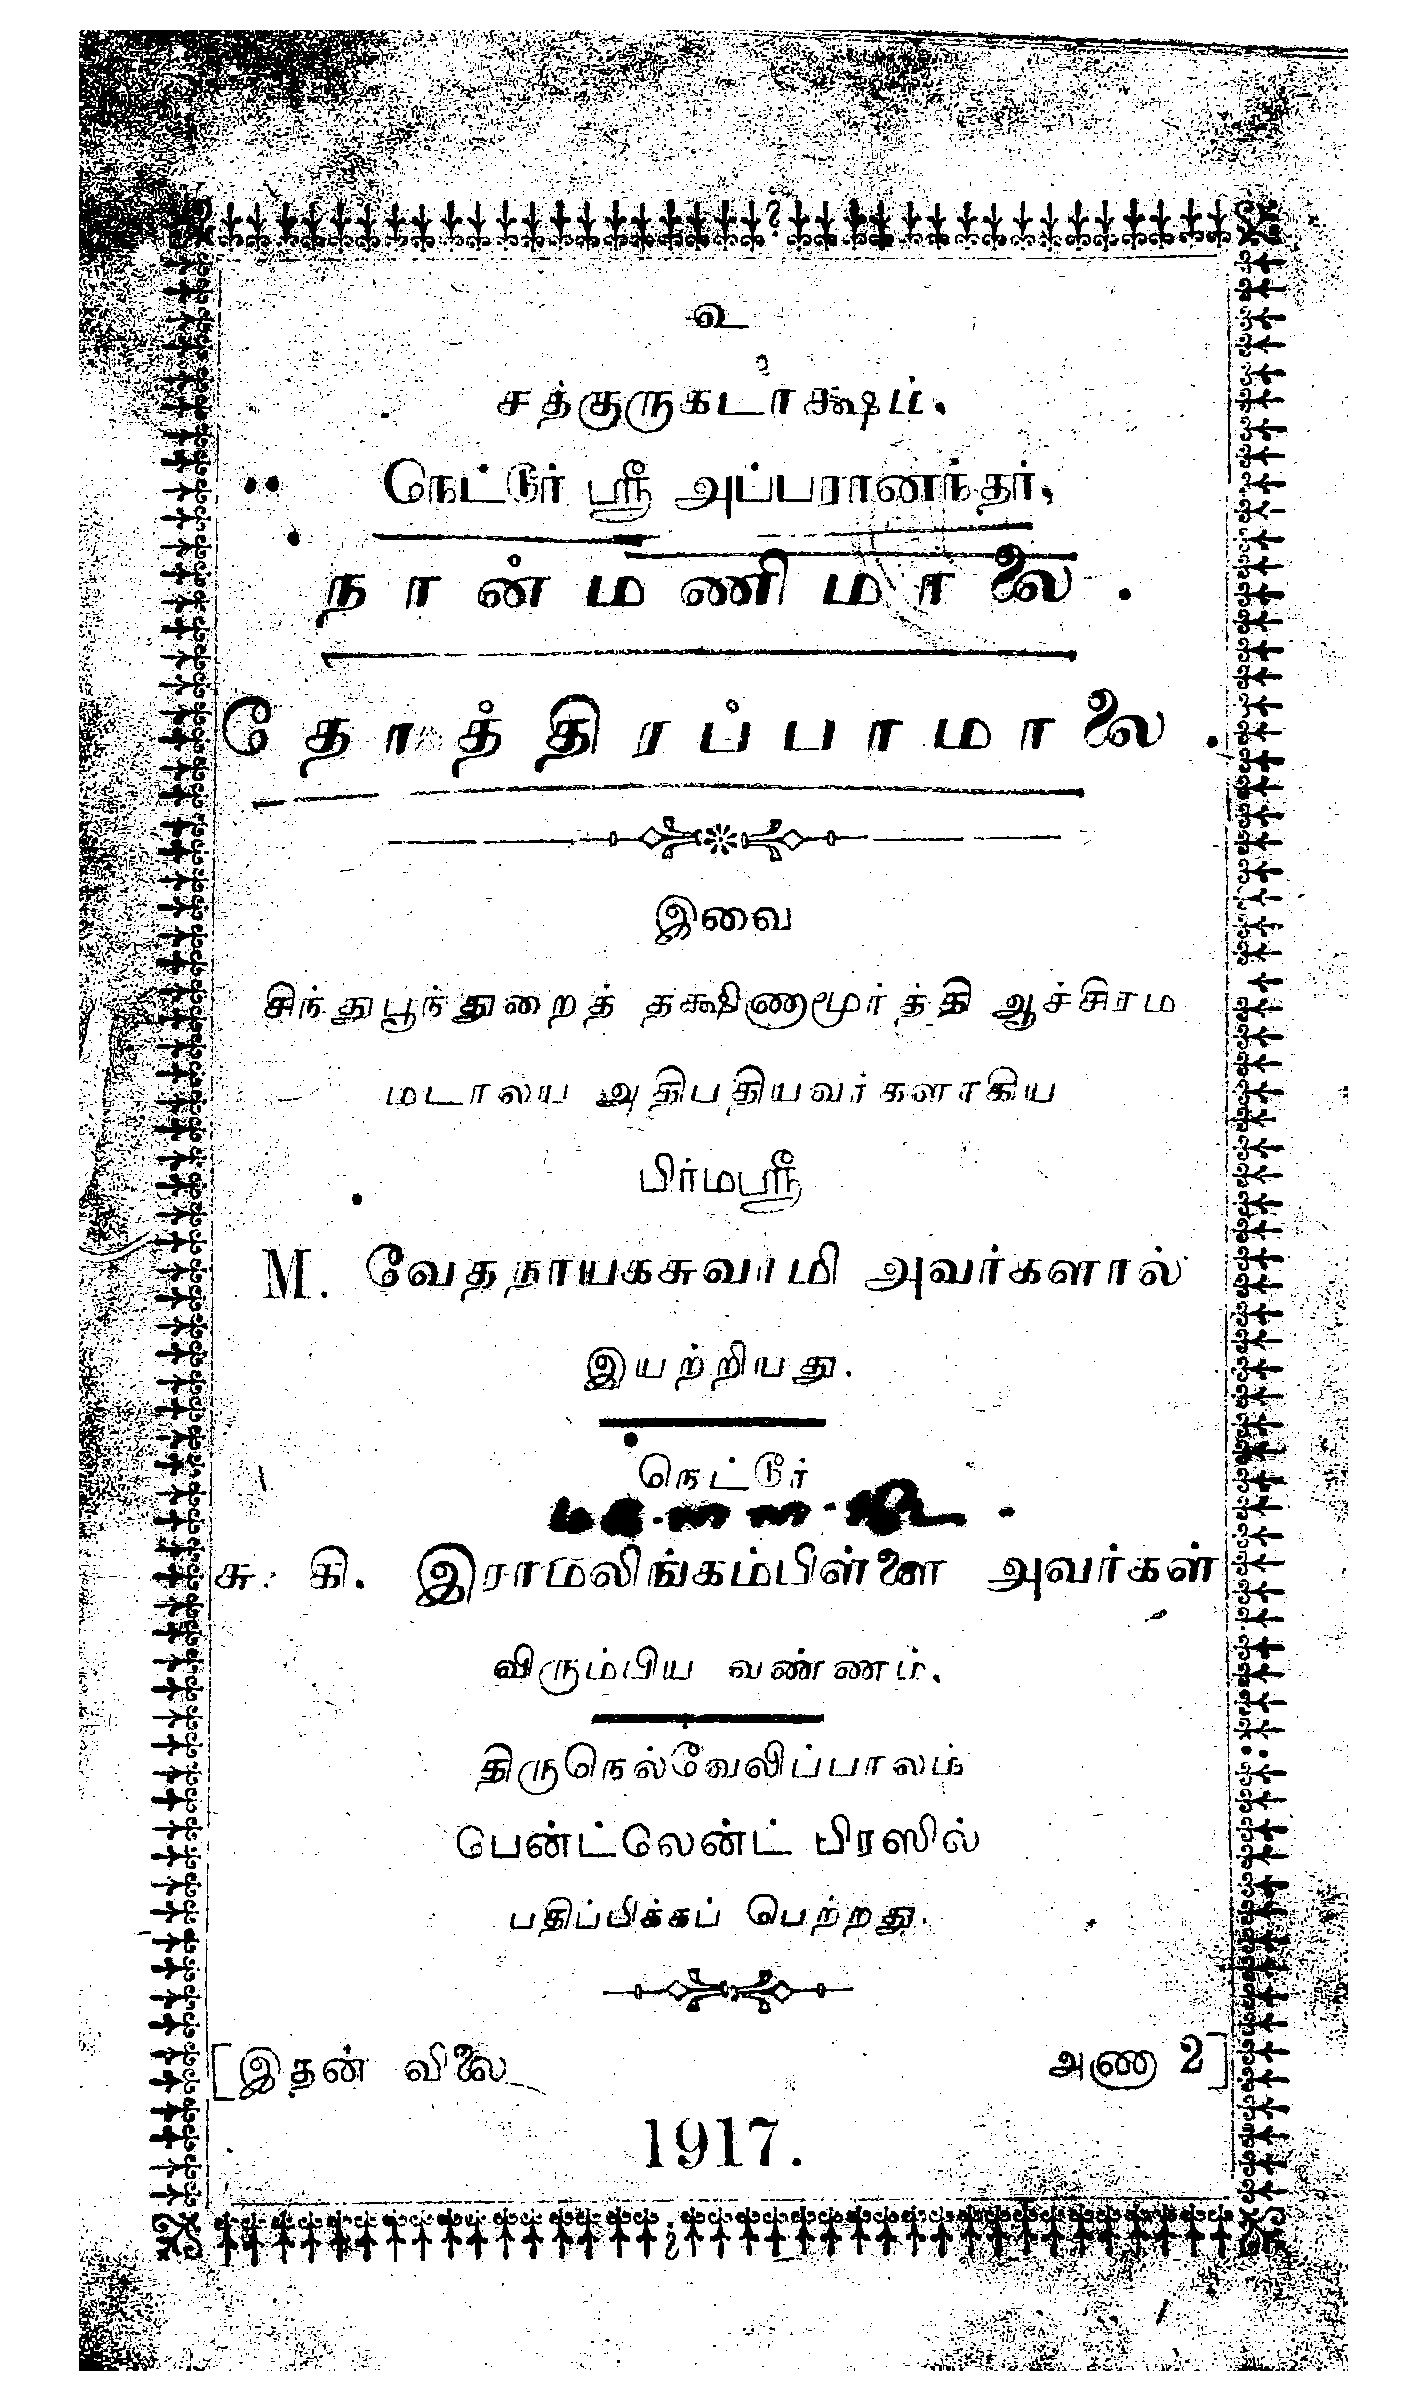 உ
சத்குருகடாக்ஷம்.
நேட்டூர் ஸ்ரீ அப்பரானந்தர்,
நான்மணிமாலை.
தோத்திரப்பாமாலை.
இவை
சிந்துபூந்துறைத் தக்ஷிணாமூர்த்தி ஆச்சிரம
மடாலய அதிபதியவர்களாகிய
பிர்மஸ்ரீ
M. வேதநாயகசுவாமி அவர்களால்
இயற்றியது.
நெட்டூர்
சு. கி. இராமலிங்கம்பிள்ளை அவர்கள்
விரும்பிய வண்ணம்.
திருநெல்வேலிப்பாலம்
பேன்ட்லேன்ட் பிரஸில்
பதிப்பிக்கப் பெற்றது.
[இதன் விலை அணா 2]
1917.